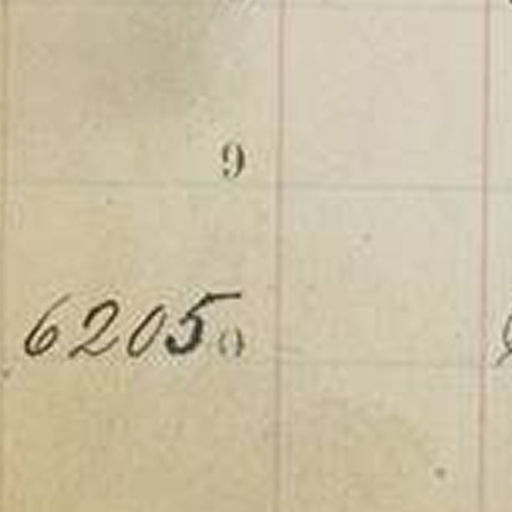 9
62050